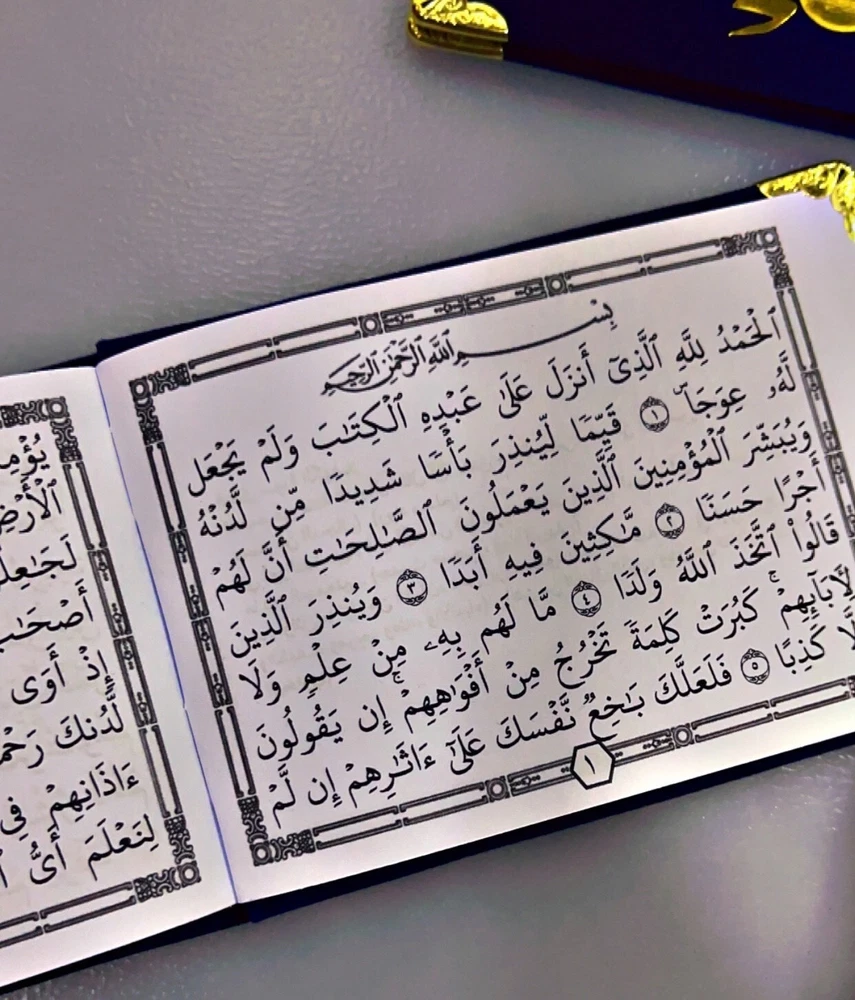 بِسْمِ ٱللَّهِ ٱلرَّحْمَٰنِ ٱلرَّحِيمِ
ٱلْحَمْدُ لِلَّهِ ٱلَّذِىٓ أَنزَلَ عَلَىٰ عَبْدِهِ ٱلْكِتَٰبَ وَلَمْ يَجْعَل
لَّهُۥ عِوَجَاۜ ١ قَيِّمًا لِّيُنذِرَ بَأْسًا شَدِيدًا مِّن لَّدُنْهُ
وَيُبَشِّرَ ٱلْمُؤْمِنِينَ ٱلَّذِينَ يَعْمَلُونَ ٱلصَّٰلِحَٰتِ أَنَّ لَهُمْ
أَجْرًا حَسَنًا ٢ مَّٰكِثِينَ فِيهِ أَبَدًا ٣ وَيُنذِرَ ٱلَّذِينَ
قَالُوا۟ ٱتَّخَذَ ٱللَّهُ وَلَدًا ٤ مَّا لَهُم بِهِۦ مِنْ عِلْمٍ وَلَا
لِأَبَآئِهِمْ ۚ كَبُرَتْ كَلِمَةً تَخْرُجُ مِنْ أَفْوَٰهِهِمْ ۚ إِن يَقُولُونَ
لَّا كَذِبًا ٥ فَلَعَلَّكَ بَٰخِعٌ نَّفْسَكَ عَلَىٰٓ ءَاثَٰرِهِمْ إِن لَّمْ
١
إِذْ أَوَى
لَّدُنكَ
ءَاذَانِهِمْ فِى
لِنَعْلَمَ أَىُّ